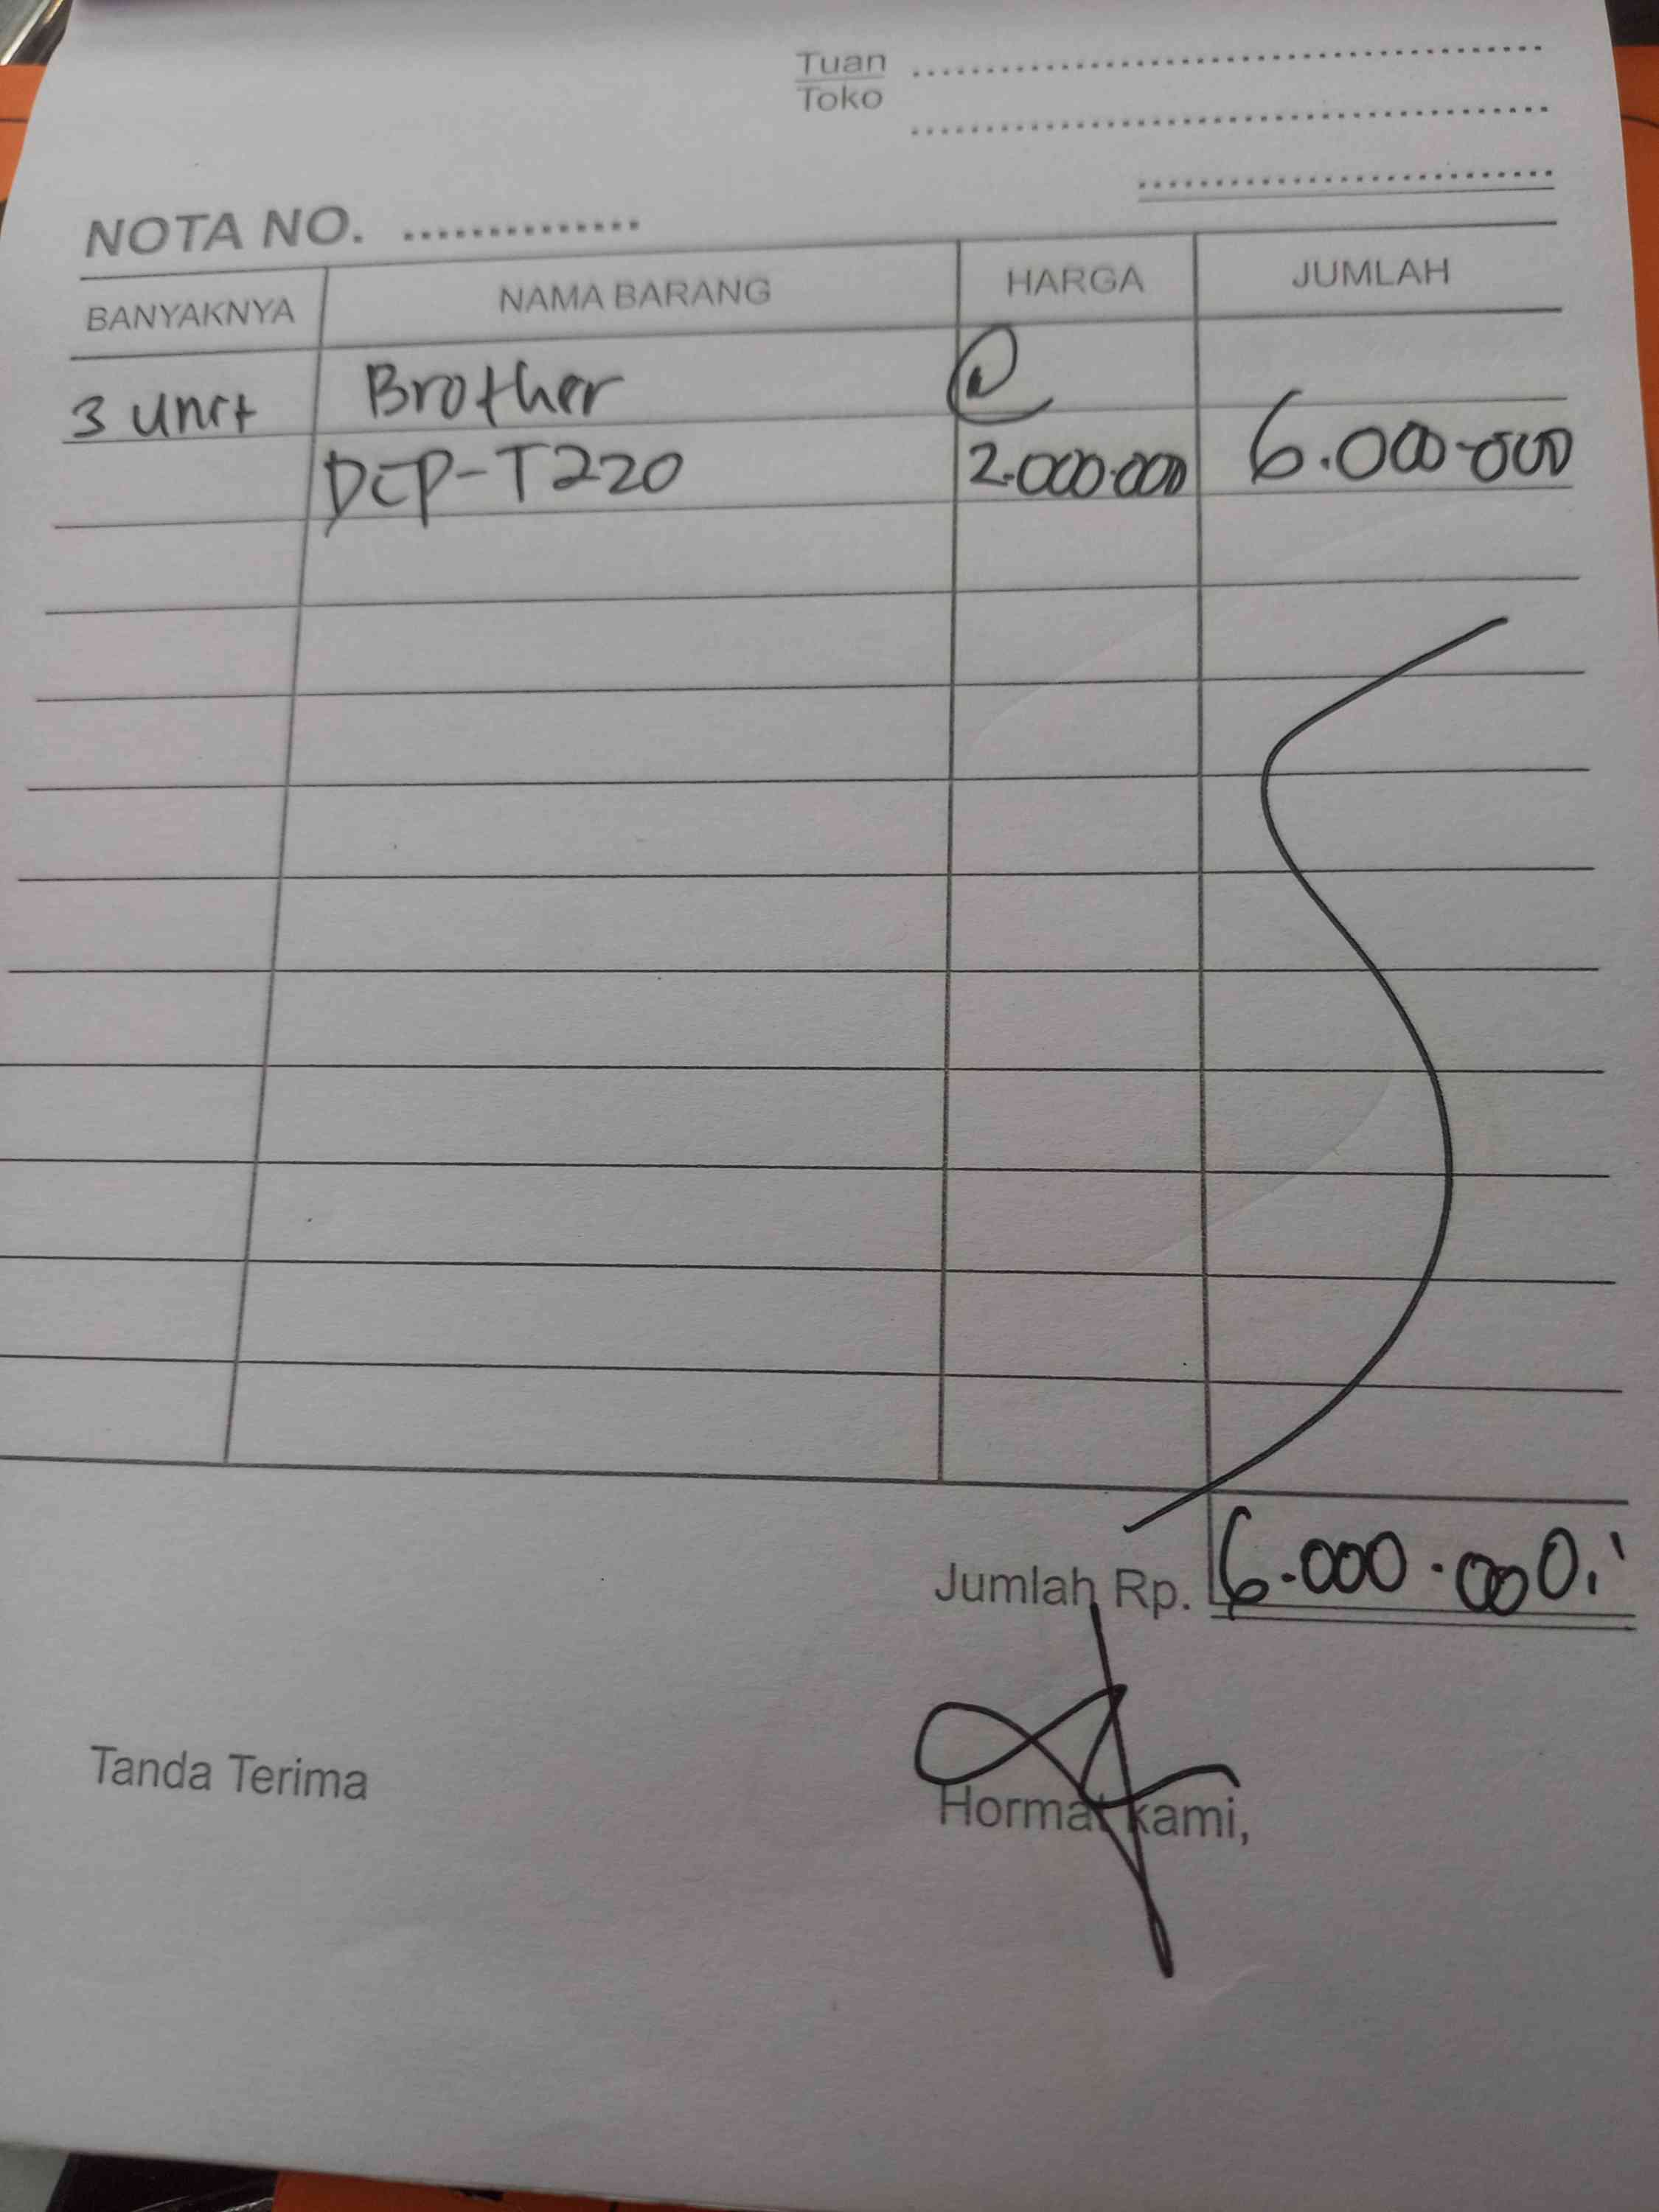 Tuan
Toko
NOTA NO. ..............
BANYAKNYA NAMA BARANG HARGA JUMLAH
3 unit Brother @
DCP-T220 2.000.000 6.000.000
Jumlah Rp. 6.000.000,-
Tanda Terima Hormat kami,